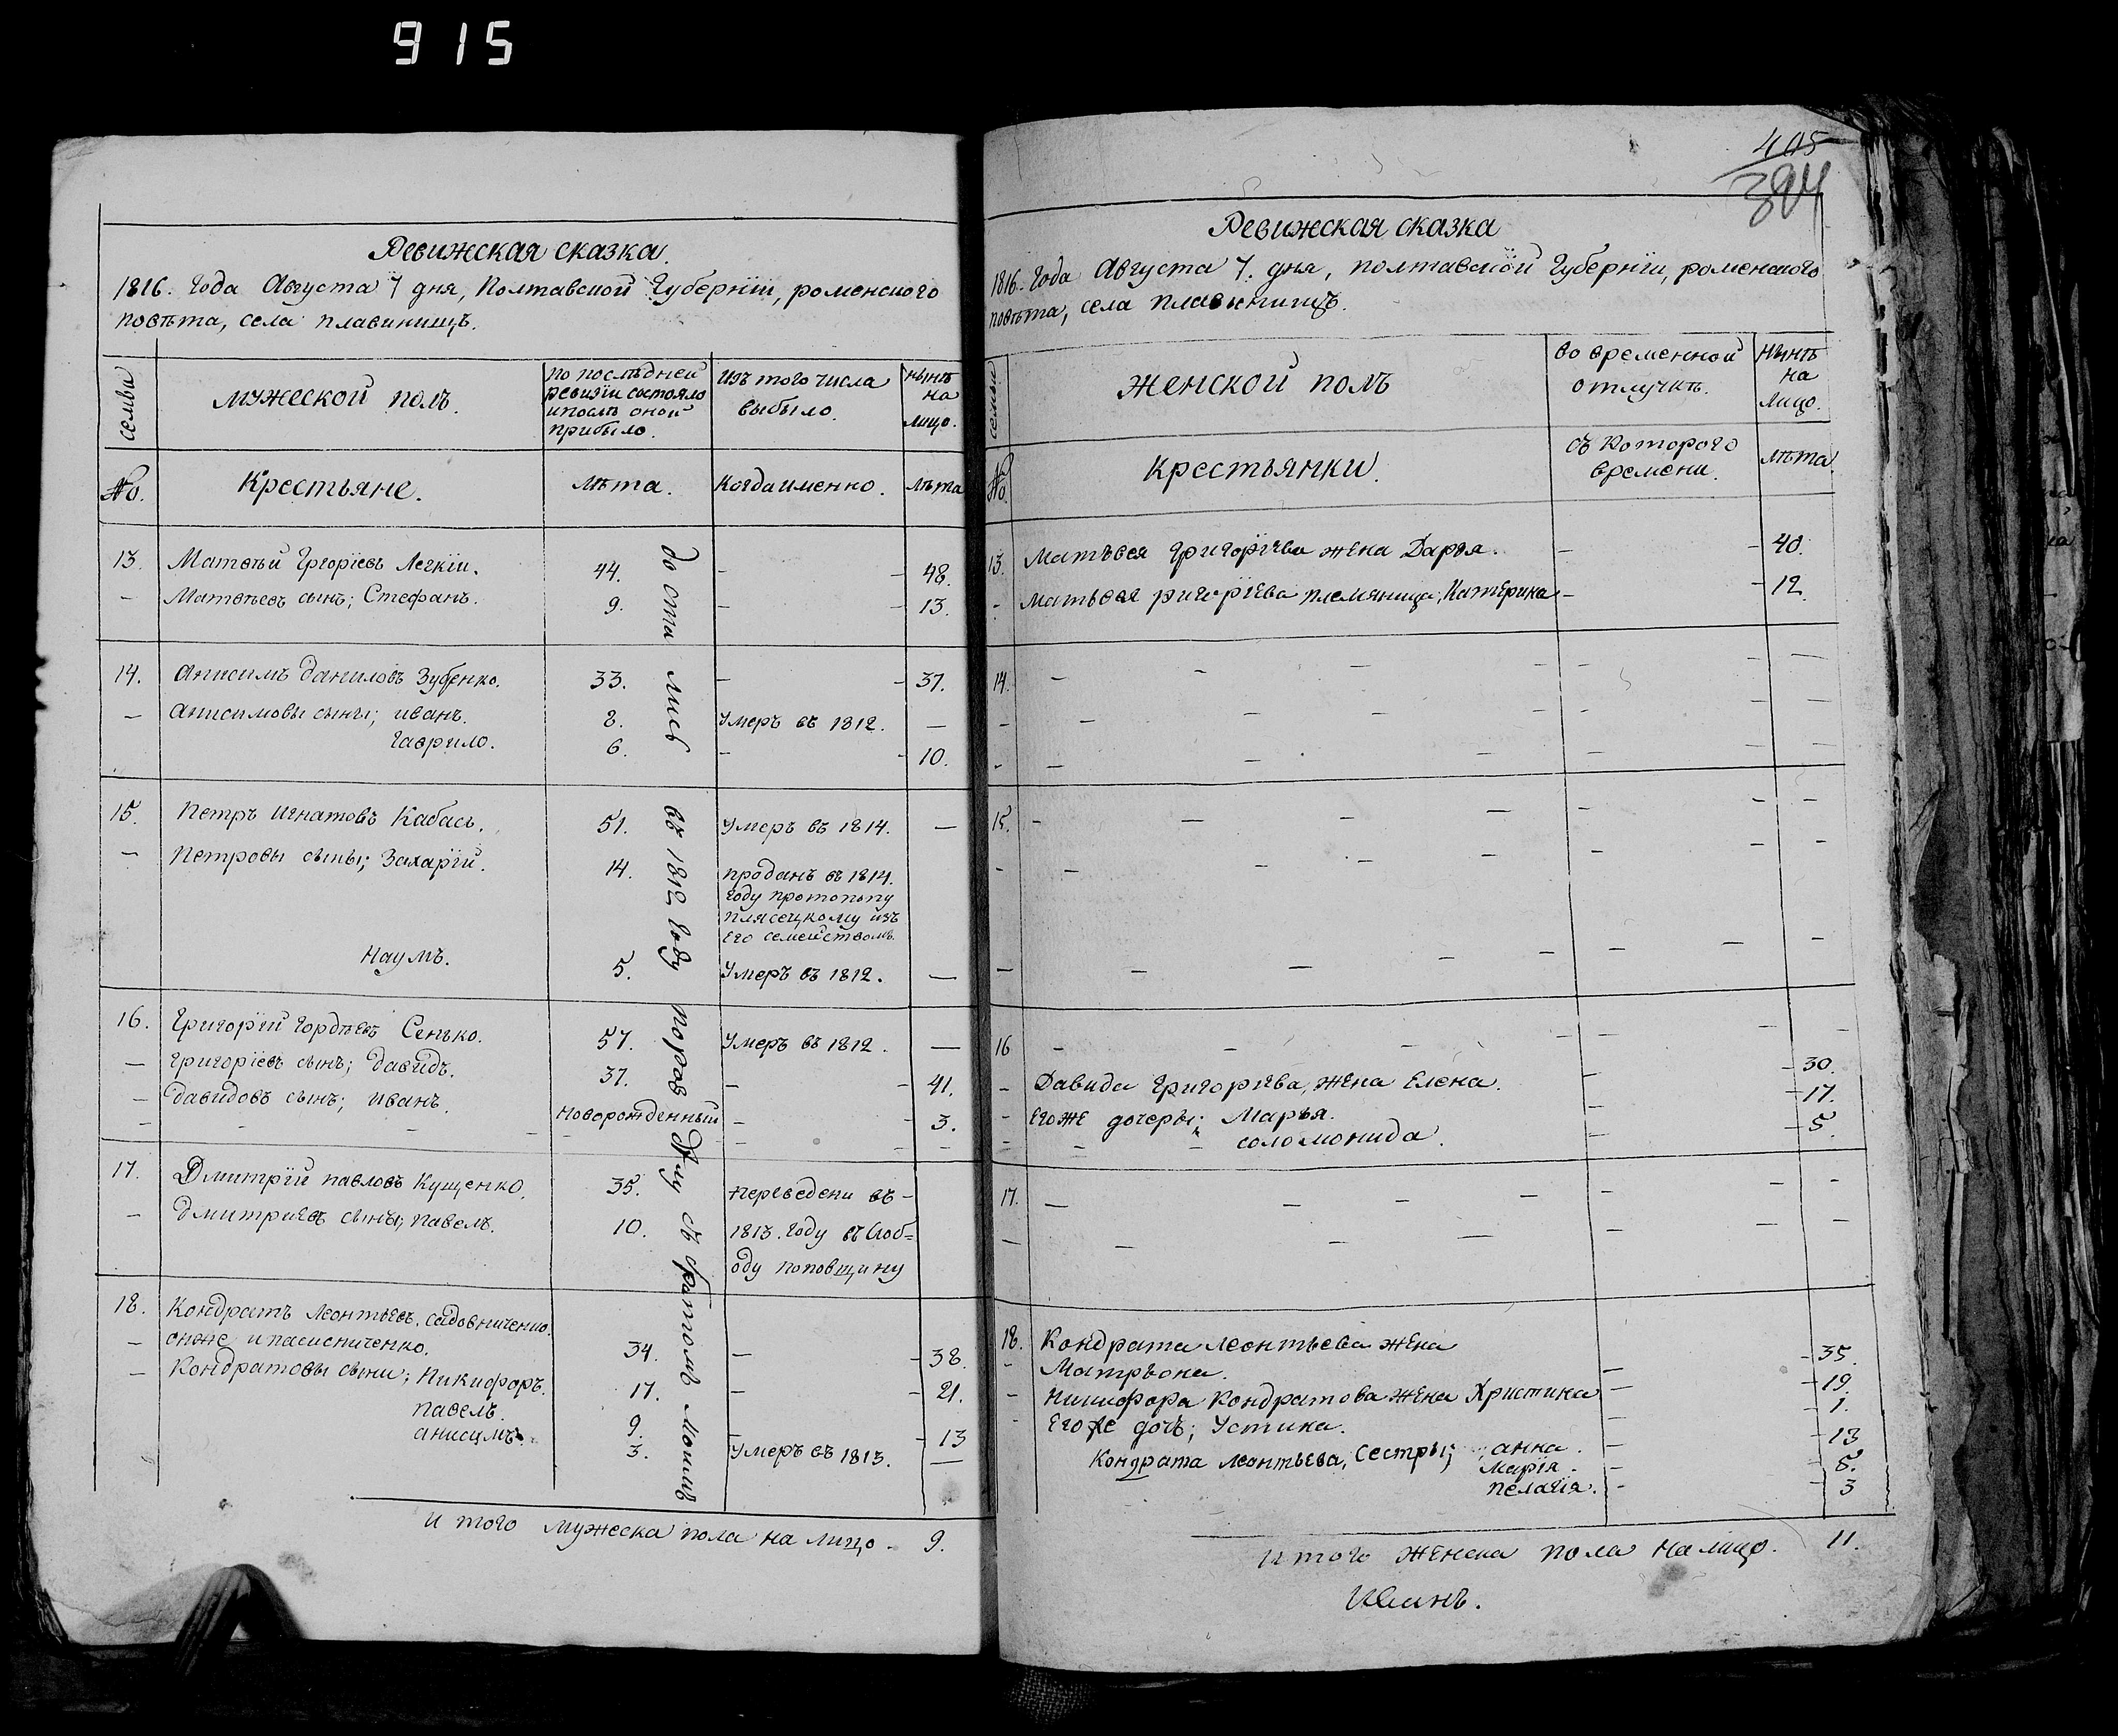 915
Ревижская сказка.
1816. Года Августа 7 дня, Полтавской Губернїи, роменского
повѣта, села плавинищъ.
семьи
мужеской полъ.
по послѣдней
ревизїи состояло
и послѣ оной
прибыло.
Изъ того числа
выбыло.
нынѣ
на
лицо.
No.
Крестьяне.
лѣта.
Когда именно.
лѣта
13. Матвѣй Григорїевъ Легкїй. 44. — — 48.
— Матвѣевъ сынъ; Стефанъ. 9. — — 13.
14. Анисимъ Даниловъ Зубенко. 33. — — 37.
— Анисимовы сыны; иванъ. 8. Умеръ въ 1812. —
Гаврило. 6. — — 10.
15. Петръ Игнатовъ Кабась. 51. Умеръ въ 1814. —
— Петровы сыны; Захарїй. 14. проданъ въ 1814.
году протопопу
плясецкому изъ
его семействомъ.
Наумъ. 5. Умеръ въ 1812. —
16. Григорїй Гордѣевъ Сенько. 57. Умеръ въ 1812. —
— Григорїевъ сынъ; Давидъ. 37. — — 41.
— Давидовъ сынъ; иванъ. новорожденный — — 3.
17. Дмитрїй павловъ Кущенко. 35. переведени въ —
— Дмитриевъ сынъ; павелъ. 10. 1813. году въ слоб=
оду поповщину
18. Кондратъ Леонтьевъ, садовниченко.
— онже и пасисниченко. 34. — — 38.
— Кондратовы сыни; Никифоръ. 17. — — 21.
павелъ. 9. — — 13
анисимъ. 3. Умеръ въ 1813. —
и того мужеска пола на лицо — 9.
до ста лисъ въ 1812 году
съ братомъ
405
384
Ревижская сказка
1816. Года Августа 7. дня, полтавской Губернїи, роменского
повѣта, села плавынищъ.
семьи
Женской полъ
во временной
отлучкѣ.
Нынѣ
на
лицо.
No.
Крестьянки.
съ которого
времени.
лѣта.
13. Матвѣя Григорїева жена Дарья. — — 40.
- Матвѣя ригорїева племяница; Катерина — — 12.
14.
15.
16
- Давида Григориева, жена Елена. — — 30.
- Егоже дочеры; Марья. — — 17.
соломонида. — — 5.
17.
18. Кондрата Леонтьева жена
- Матрьона. — — 35.
- Никифора Кондратова жена Христина — — 19.
- Егоже дочь; Устина. — — 1.
Кондрата Леонтьева, сестры; анна. — — 13
Марїя. — — 8.
пелагїя. — — 3
и того женска пола на лицо. 11.